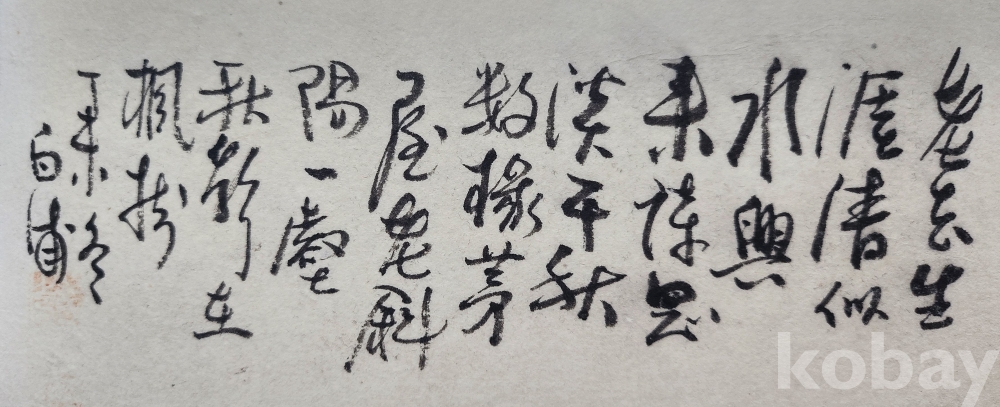 老去生
涯淸似
水興
來陳思
淡于秋
數椽茅
屋斜
陽一
秋聲在
楓
丁未冬
白浦
kobay